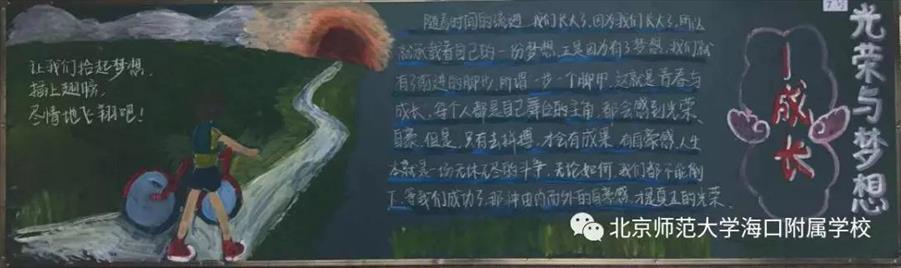 让我们拾起梦想，
插上翅膀，
尽情地飞翔吧！
随着时间的流逝，我们长大了，因为我们长大了，所以
就承载着自己的一份梦想，正是因为有了梦想，我们就
有了前进的脚步，所谓一步一个脚印，这就是青春与
成长，每个人都是自己舞台的主角，都会感到光荣、
自豪。但是，只有去拼搏，才会有成果，有自豪感，人生
本就是一场无休无尽的斗争，无论如何，我们都不能倒
下，等我们成功了，那种由内而外的自豪感，才是真正的光荣。
成长
光荣与梦想
北京师范大学海口附属学校